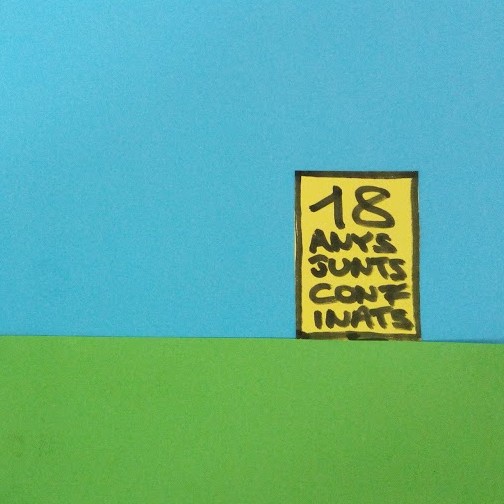 18
ANYS
JUNTS
CONF
INATS